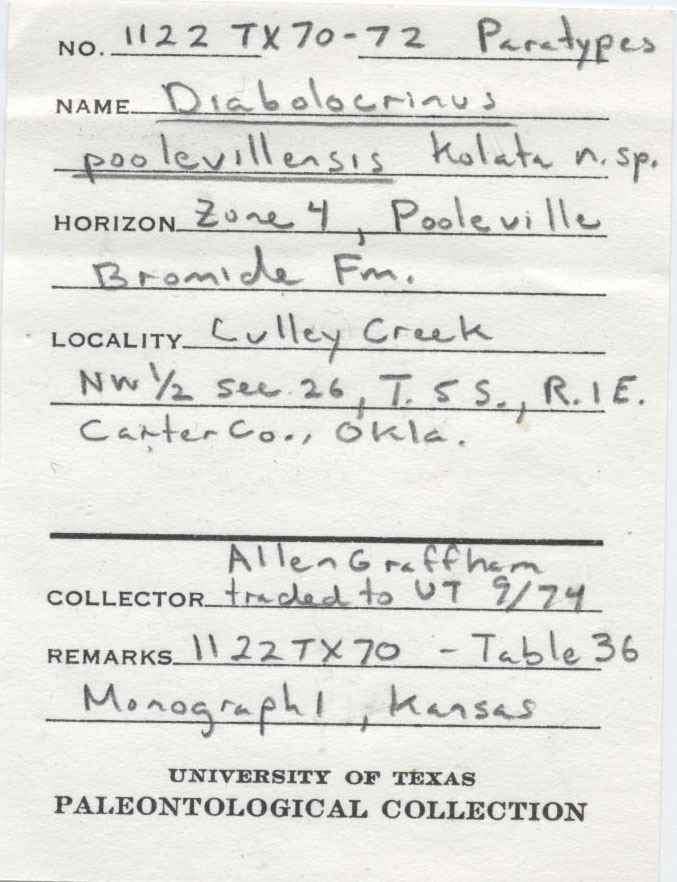 NO. 1122 TX 70-72 Paratypes
NAME Diabolocrinus
poolevillensis Kolata n. sp.
HORIZON Zone 4, Pooleville
Bromide Fm.
LOCALITY Culley Creek
NW 1/2 sec. 26, T. 5 S., R. 1 E.
Carter Co., Okla.
Allen Graffham
COLLECTOR traded to UT 9/74
REMARKS 1122 TX 70 - Table 36
Monograph 1, Kansas
UNIVERSITY OF TEXAS
PALEONTOLOGICAL COLLECTION